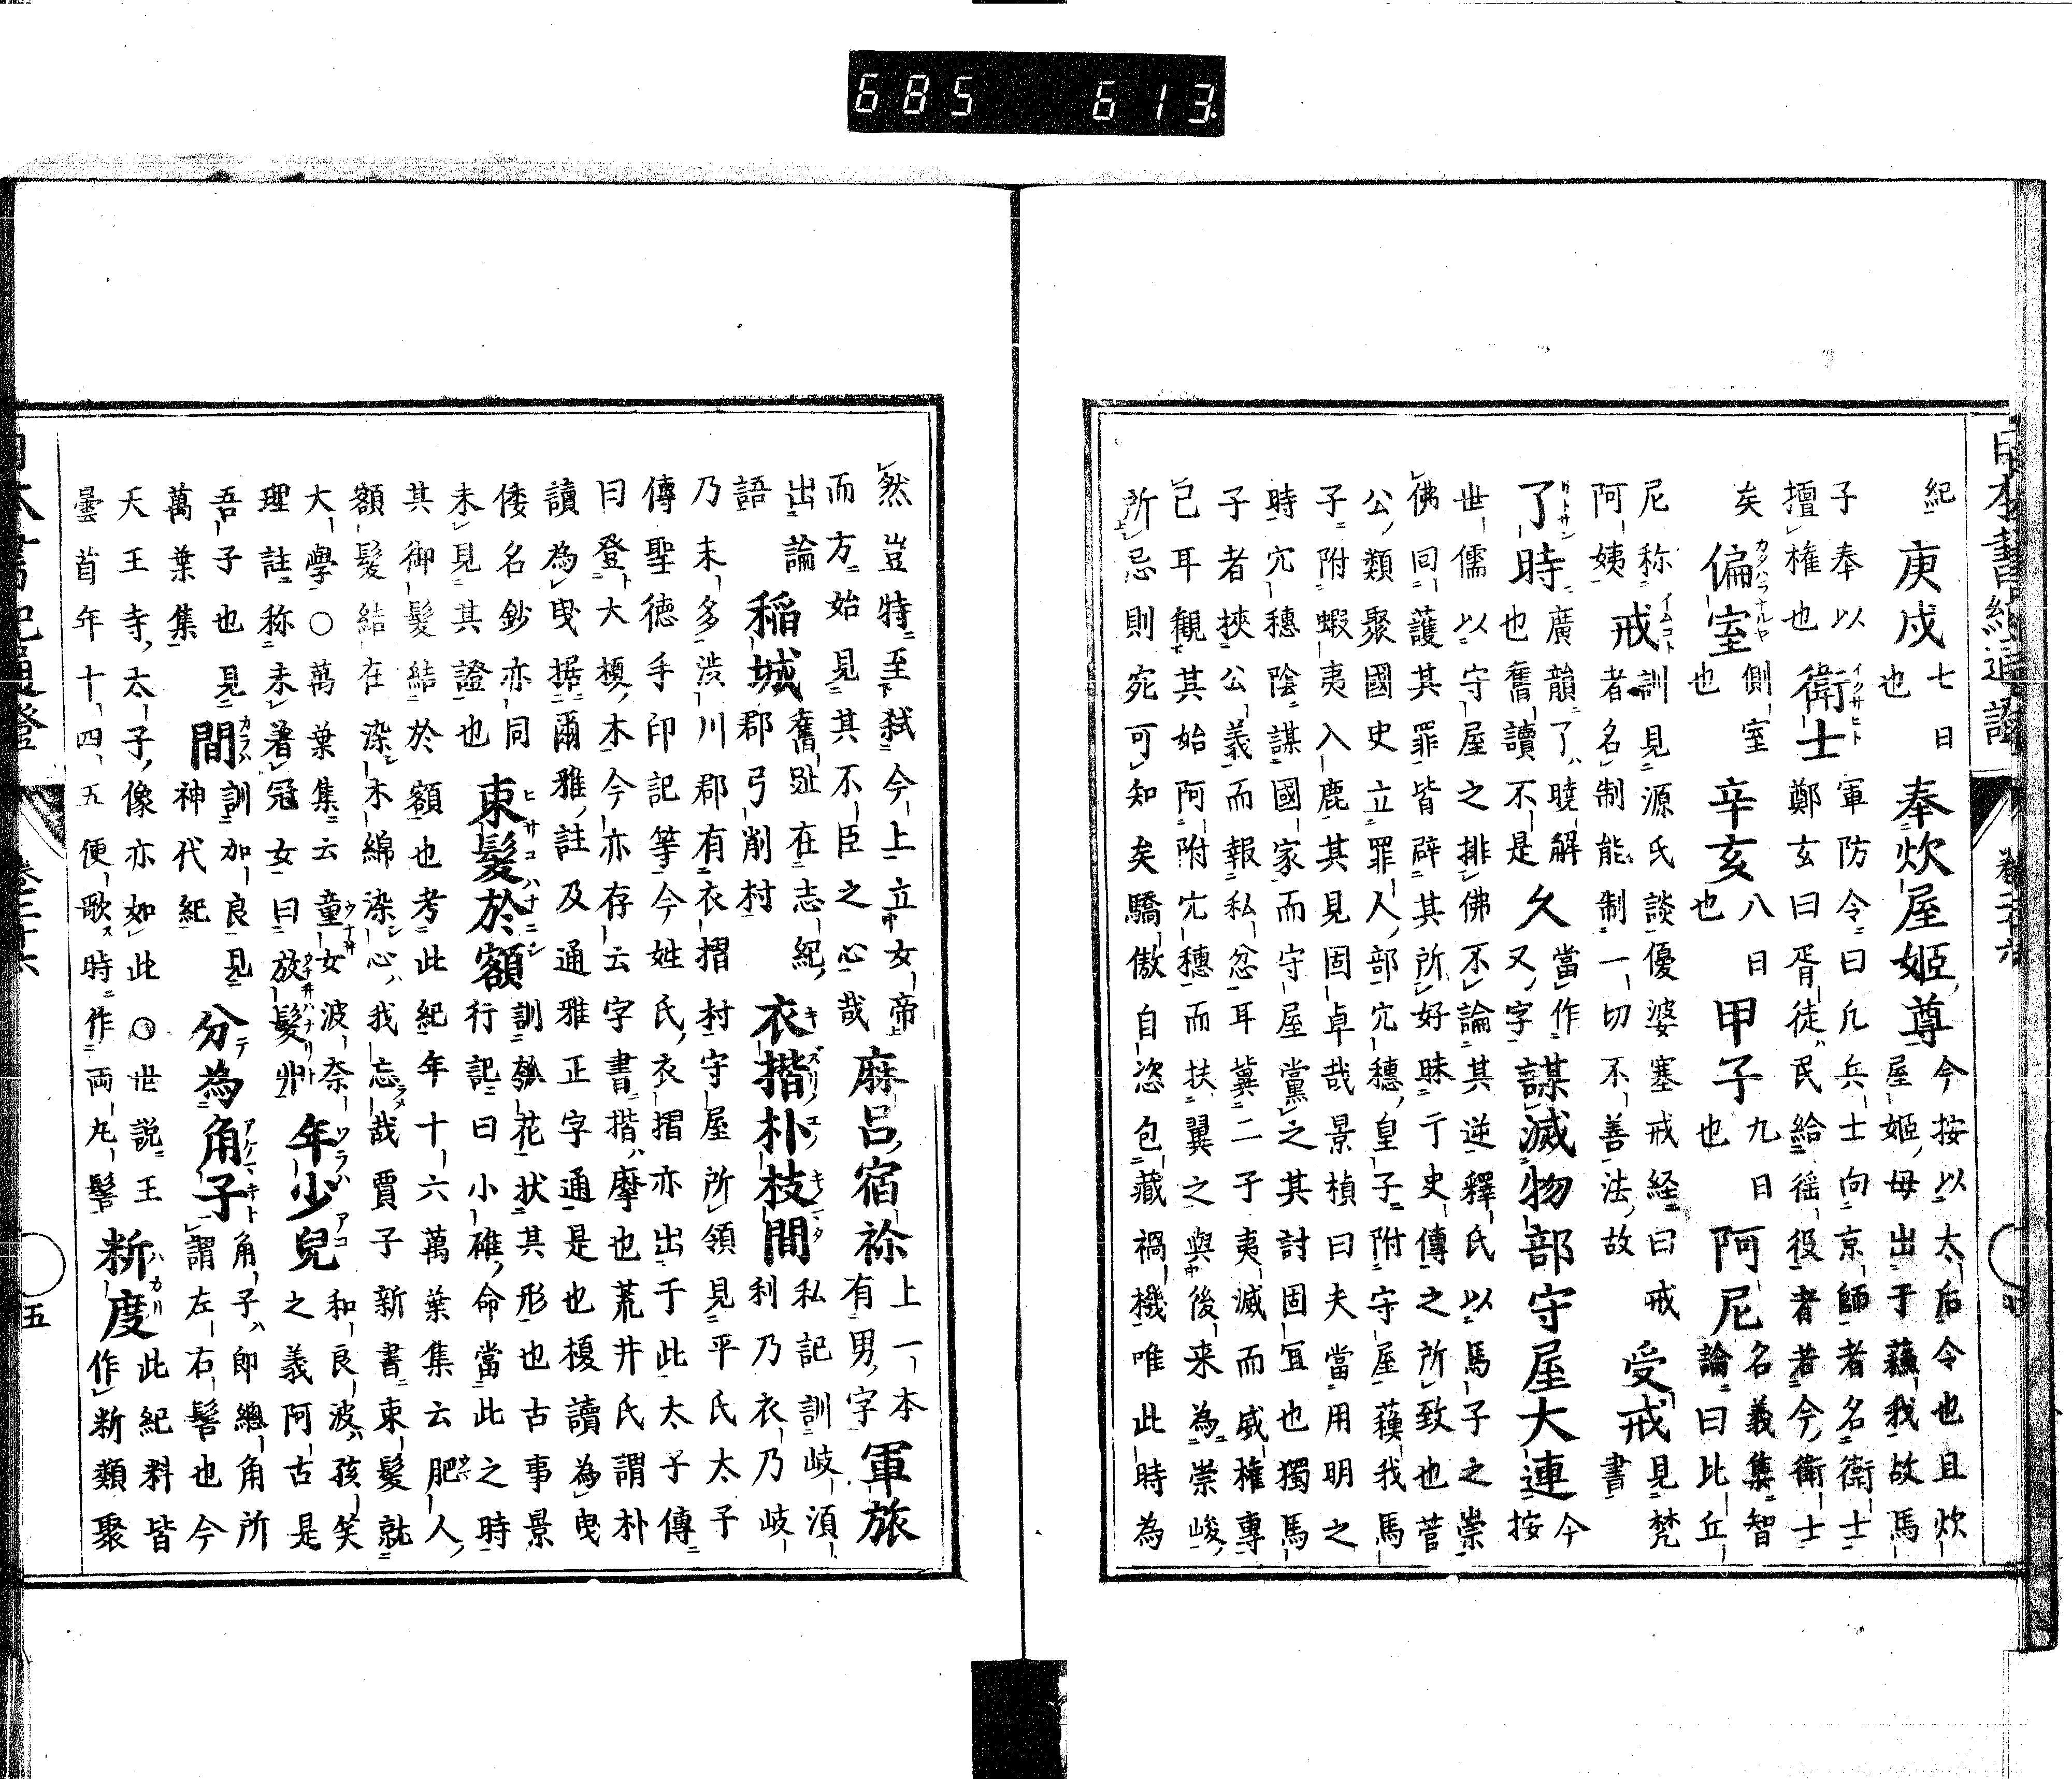 日本書紀通證 卷二十六 四
紀
庚戌
七日
也
奉炊屋姬尊
今按以太后令也且炊
屋姬母出于蘓我故馬
子奉以
擅権也
衛士
イクサヒト
軍防令曰凡兵士向京師者名衛士
鄭玄曰胥徒民給徭役者若今衛士
矣
偏室
カタハラナルヤ
側室
也
辛亥
八日
也
甲子
九日
也
阿尼
名義集智
論曰比丘
尼称
阿姨
戒
イムコト
訓見源氏談優婆塞戒経曰戒
者名制能制一切不善法故
受戒
見梵
書
了時
廣韻了曉解
也舊讀不是
久
當作
又字
謀滅物部守屋大連
今
按
世儒以守屋之排佛不論其逆釋氏以馬子之崇
佛回護其罪皆辟其所好昧亍史傳之所致也菅
公類聚國史立罪人部宂穗皇子附守屋蘓我馬
子附蝦夷入鹿其見固卓哉景楨曰夫當用明之
時宂穗陰謀國家而守屋黨之其討固宜也獨馬
子者挾公義而報私忿耳冀二子夷滅而威権專
已耳觀其始阿附宂穗而扶翼之與後来為崇峻
所忌則宛可知矣驕傲自恣包藏禍機唯此時為
然豈特至弑今上立女帝
而方始見其不臣之心哉
麻呂宿祢
上一本
有男字
軍旅
出論
語
稲城
舊趾在志紀
郡弓削村
衣揩朴枝間
私記訓岐湏
利乃衣乃岐
乃末多渋川郡有衣摺村守屋所領見平氏太子
傳聖德手印記等今姓氏衣摺亦出于此太子傳
曰登大榎木今亦存云字書揩摩也荒井氏謂朴
讀為曳据爾雅註及通雅正字通是也榎讀為曳
倭名鈔亦同
未見其證也
束髮於額
ヒサコハナニシ
訓瓠花状其形也古事景
行記曰小碓命當此之時
其御髮結於額也考此紀年十六萬葉集云肥人
額髮結在染木綿染心我忘哉賈子新書束髮就
大學○萬葉集云童女波奈
理註称未著冠女曰放髮丱
年少兒
ワラハ アコ
和良波孩笑
之義阿古是
吾子也見
萬葉集
間
訓加良見
神代紀
分為角子
アケマキ
角子即總角所
謂左右髻也今
天王寺太子像亦如此○世説王
曇首年十四五便歌時作両丸髻
斮度
ハカリ
此紀料皆
作斮類聚
日本書紀通證 卷二十六 五
685 613